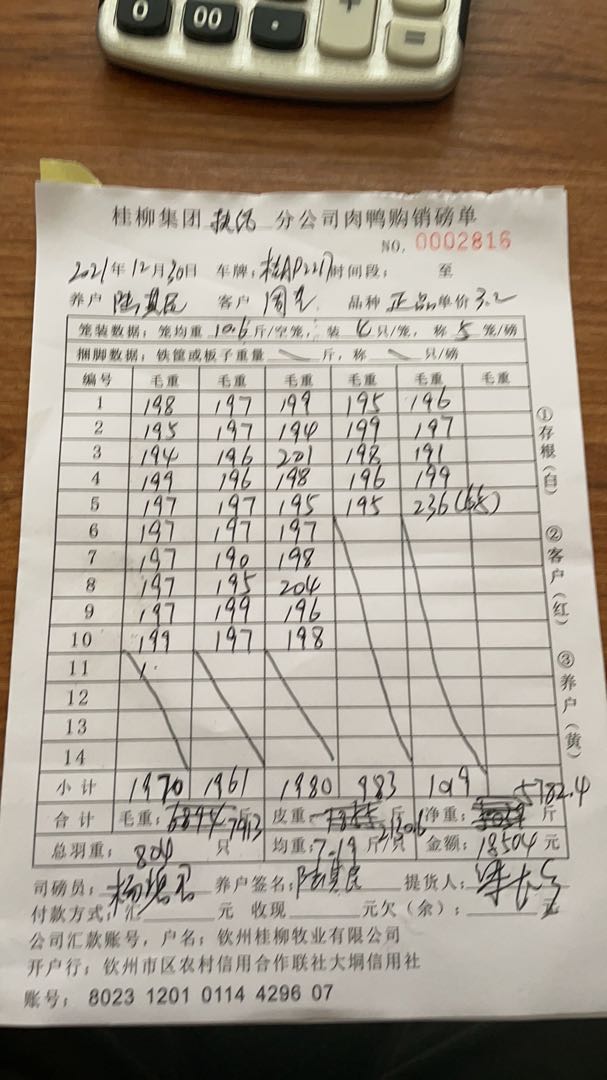 0 00 · + =
桂柳集团 钦州 分公司肉鸭购销磅单
NO. 0002816
2021年12月30日 车牌: 桂AP2217 时间段: 至
养户 陆其民 客户 周 品种 正品 单价 3.2
笼装数据: 笼均重 10.6 斤/空笼, 装 4 只/笼, 称 5 笼/磅
捆脚数据: 铁筐或板子重量 斤, 称 只/磅
编号 毛重 毛重 毛重 毛重 毛重 毛重
1 198 197 199 195 196
2 195 197 194 199 197
3 194 196 201 198 191
4 199 196 198 196 199
5 197 197 195 195 236
6 197 197 197
7 197 190 198
8 197 195 204
9 197 199 196
10 199 197 198
11
12
13
14
小计 1970 1961 1980 983 1019 5782.4
合计 毛重: 7913 斤 皮重: 2130.6 斤 净重: 斤
总羽重: 804 只 均重: 7.19 斤/只 金额: 18504 元
司磅员: 养户签名: 陆其民 提货人:
付款方式: 汇 元 收现 元欠(余): 元
公司汇款账号, 户名: 钦州桂柳牧业有限公司
开户行: 钦州市区农村信用合作联社大垌信用社
账号: 8023 1201 0114 4296 07
①存根(白)
②客户(红)
③养户(黄)